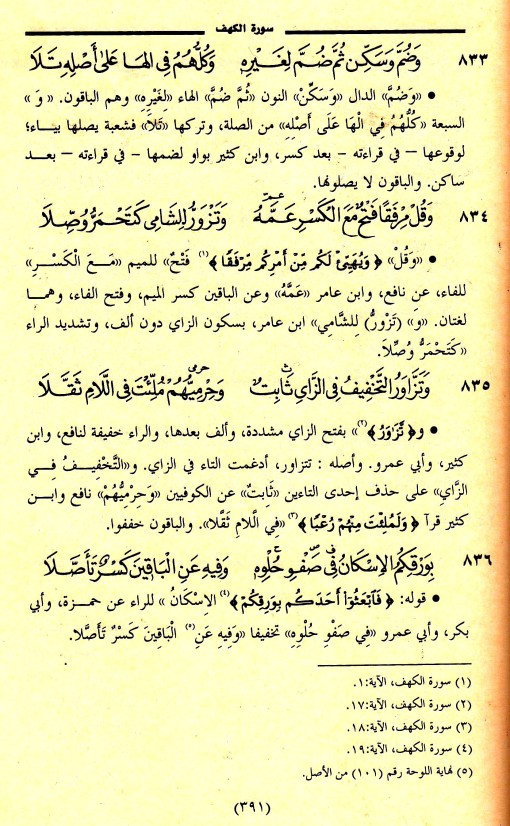 سورة الكهف
٨٣٣ وَضُمَّ وَسَكِّنْ ثُمَّ ضُمَّ لِغَيْرِهِ وَكُلُّهُمُ فِي الهَا عَلَى أَصْلِهِ تَلَا
• «وَضُمَّ» الدال «وَسَكِّنْ» النون «ثُمَّ ضُمَّ» الهاء «لِغَيْرِهِ» وهم الباقون. « وَ »
السبعة «كُلُّهُمُ فِي الْهَا عَلَى أَصْلِهِ» من الصلة، وتركها «تَلَا» فشعبة يصلها بياء؛
لوقوعها – في قراءته – بعد كسر، وابن كثير بواو لضمها – في قراءته – بعد
ساكن. والباقون لا يصلونها.
٨٣٤ وَقُلْ مِرْفَقًا فَتْحٌ مَعَ الْكَسْرِ عَمَّهُ وَتَزْوَرُّ لِلشَّامِي كَتَحْمَرُّ وُصِّلَا
عم
• «وَقُلْ» ﴿ وَيُهَيِّئْ لَكُم مِّنْ أَمْرِكُم مِّرْفَقًا ﴾(١) فَتْحٌ» للميم «مَعَ الْكَسْرِ»
للفاء، عن نافع، وابن عامر «عَمَّهُ» وعن الباقين كسر الميم، وفتح الفاء، وهما
لغتان. «وَ» (تَزْوَرُّ) لِلشَّامِي» ابن عامر، بسكون الزاي دون ألف، وتشديد الراء
«كَتَحْمَرُّ وُصِّلَا.
٨٣٥ وَتَزَاوَرُ التَّخْفِيفُ فِي الزَّايِ ثَابِتٌ وَحِرْمِيُّهُمْ مُلِّئْتَ فِي اللَّامِ ثَقَّلَا
ث حرمي
• و﴿ تَّزَاوَرُ ﴾(٢)» بفتح الزاي مشددة، وألف بعدها، والراء خفيفة لنافع، وابن
كثير، وأبي عمرو. وأصله : تتزاور، أدغمت التاء في الزاي. و«التَّخْفِيفُ فِي
الزَّايِ» على حذف إحدى التاءين «ثَابِتٌ» عن الكوفيين «وَحِرْمِيُّهُمْ» نافع وابن
كثير قرآ ﴿ وَلَمُلِّئْتَ مِنْهُمْ رُعْبًا ﴾(٣) «فِي اللَّامِ ثَقَّلَا». والباقون خففوا.
٨٣٦ بِوَرْقِكُمُ الإِسْكَانُ فِي صَفْوِ حُلْوِهِ وَفِيهِ عَنِ الْبَاقِينَ كَسْرٌ تَأَصَّلَا
ف ص ح
• قوله: ﴿ فَابْعَثُوا أَحَدَكُم بِوَرِقِكُمْ ﴾(٤) الإِسْكَانُ » للراء عن حمزة، وأبي
بكر، وأبي عمرو «فِي صَفْوِ حُلْوِهِ» تخفيفا «وَفِيهِ عَنِ(٥) الْبَاقِينَ كَسْرٌ تَأَصَّلَا.
(١) سورة الكهف، الآية:١.
(٢) سورة الكهف، الآية:١٧.
(٣) سورة الكهف، الآية:١٨.
(٤) سورة الكهف، الآية:١٩.
(٥) نهاية اللوحة رقم (١٠١) من الأصل.
(٣٩١)